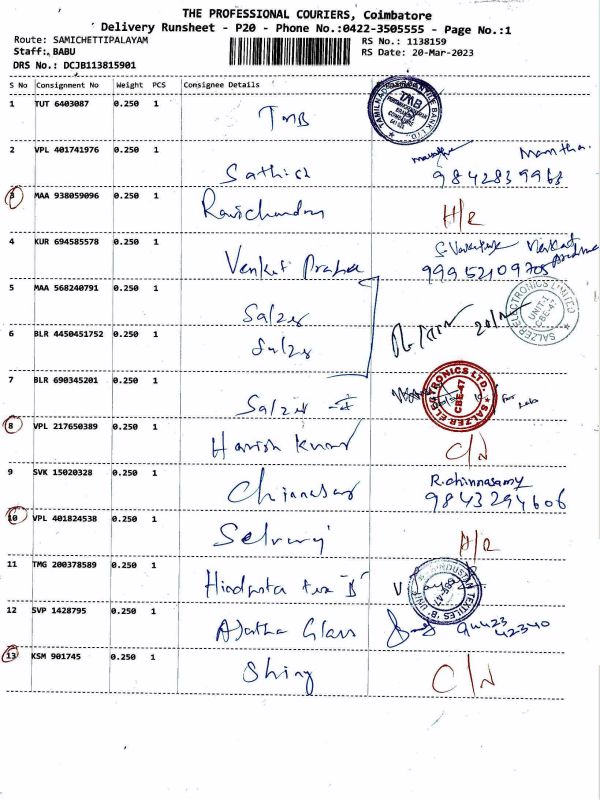 THE PROFESSIONAL COURIERS, Coimbatore
Delivery Runsheet - P20 - Phone No.:0422-3505555 - Page No.:1
Route: SAMICHETTIPALAYAM RS No.: 1138159
Staff: BABU RS Date: 20-Mar-2023
DRS No.: DCJB113815901
S No Consignment No Weight PCS Consignee Details
1 TUT 6403087 0.250 1
TMB
2 VPL 401741976 0.250 1
Sathish 9842839968
3 MAA 938059096 0.250 1
Ravichandran H/R
4 KUR 694585578 0.250 1
99952109705
5 MAA 568240791 0.250 1
Salzer
6 BLR 4450451752 0.250 1
Salzer
7 BLR 690345201 0.250 1
Salzer - I
SALZER ELECTRONICS LIMITED
UNIT-1
CBE-47
SALZER ELECTRONICS LTD.
CBE-47
8 VPL 217650389 0.250 1
Harish Kumar C/N
9 SVK 15020328 0.250 1
R.chinnasamy
Chinnasamy 9843294606
10 VPL 401824538 0.250 1
Selvaraj
11 TMG 200378589 0.250 1
"B"
HINDUSTAN TEXTILES 'B' UNIT
12 SVP 1428795 0.250 1
Glass 94423
42340
13 KSM 901745 0.250 1
Shiny C/N